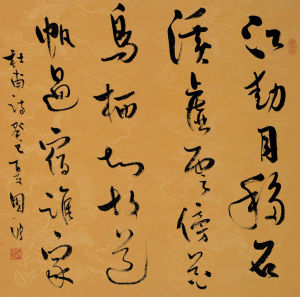 江动月移石
溪虚云傍花
鸟栖知故道
帆过宿谁家
杜甫诗 癸巳夏 国波